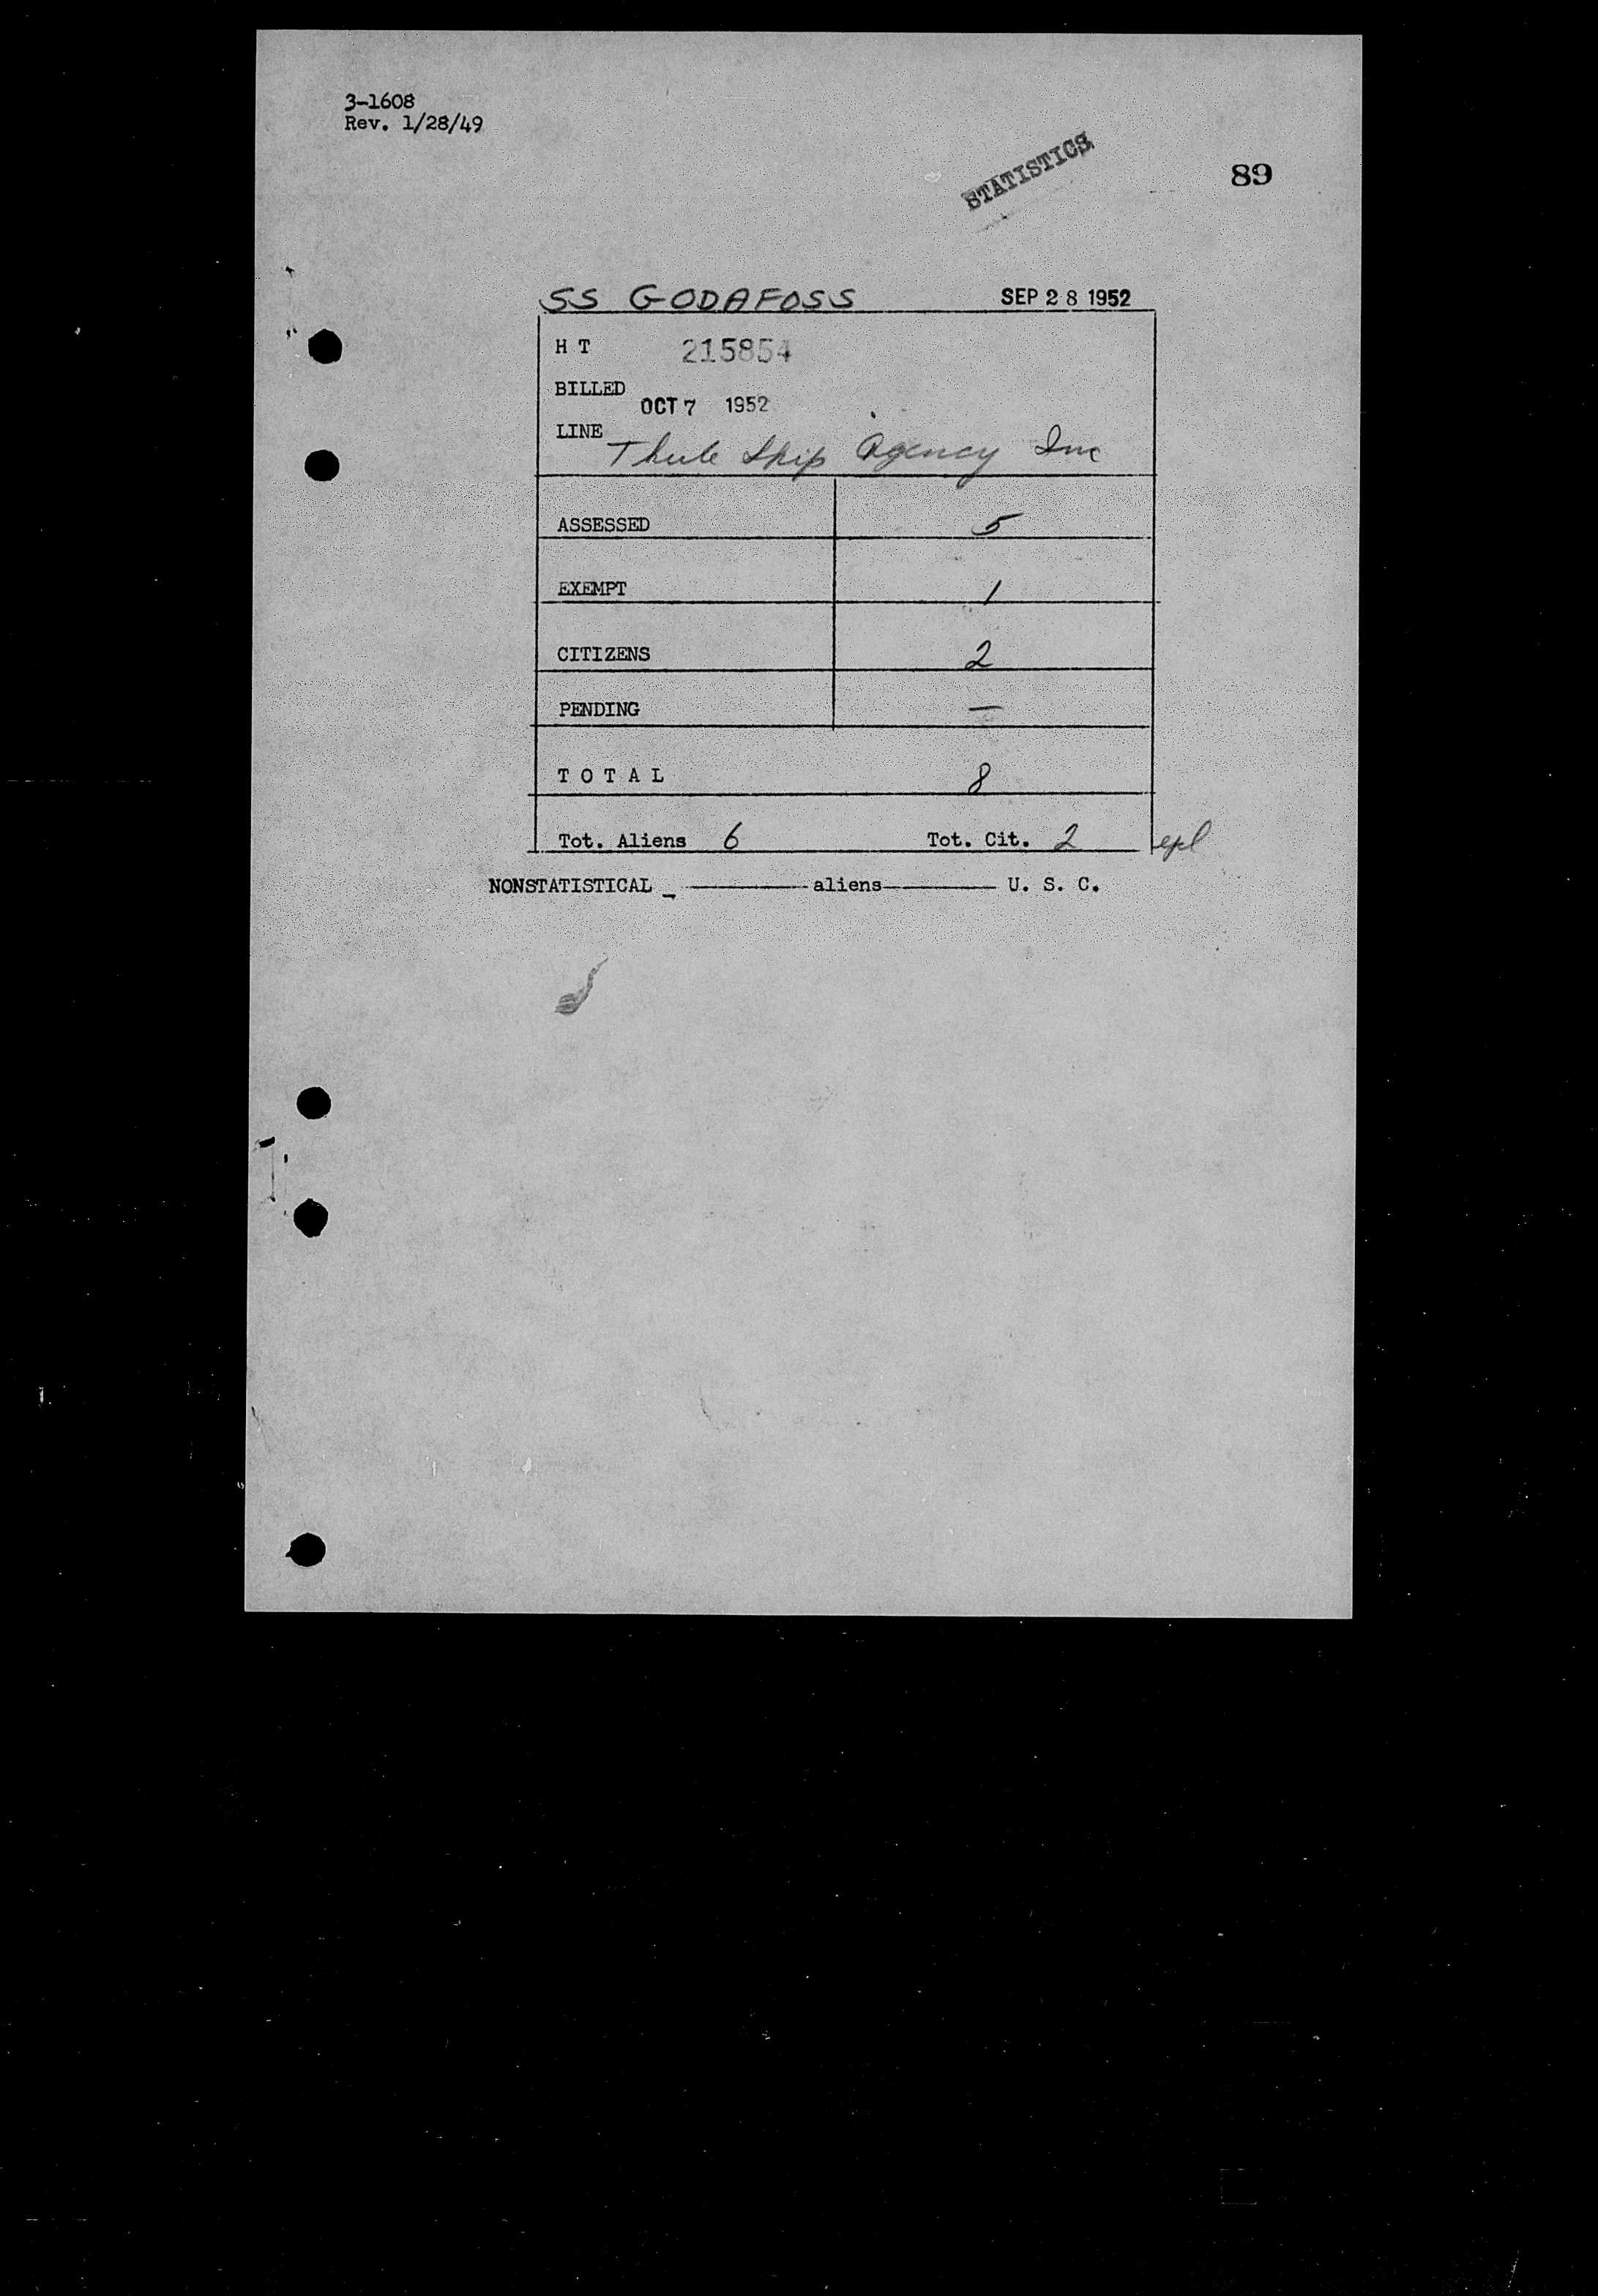 3-1608
Rev. 1/28/49
STATISTICS
89
SS GODAFOSS SEP 28 1952
H T 215854
BILLED OCT 7 1952
LINE Thule Ship Agency Inc
ASSESSED 5
EXEMPT 1
CITIZENS 2
PENDING —
T O T A L 8
Tot. Aliens 6 Tot. Cit. 2
NONSTATISTICAL _ ———— aliens ———— U. S. C.